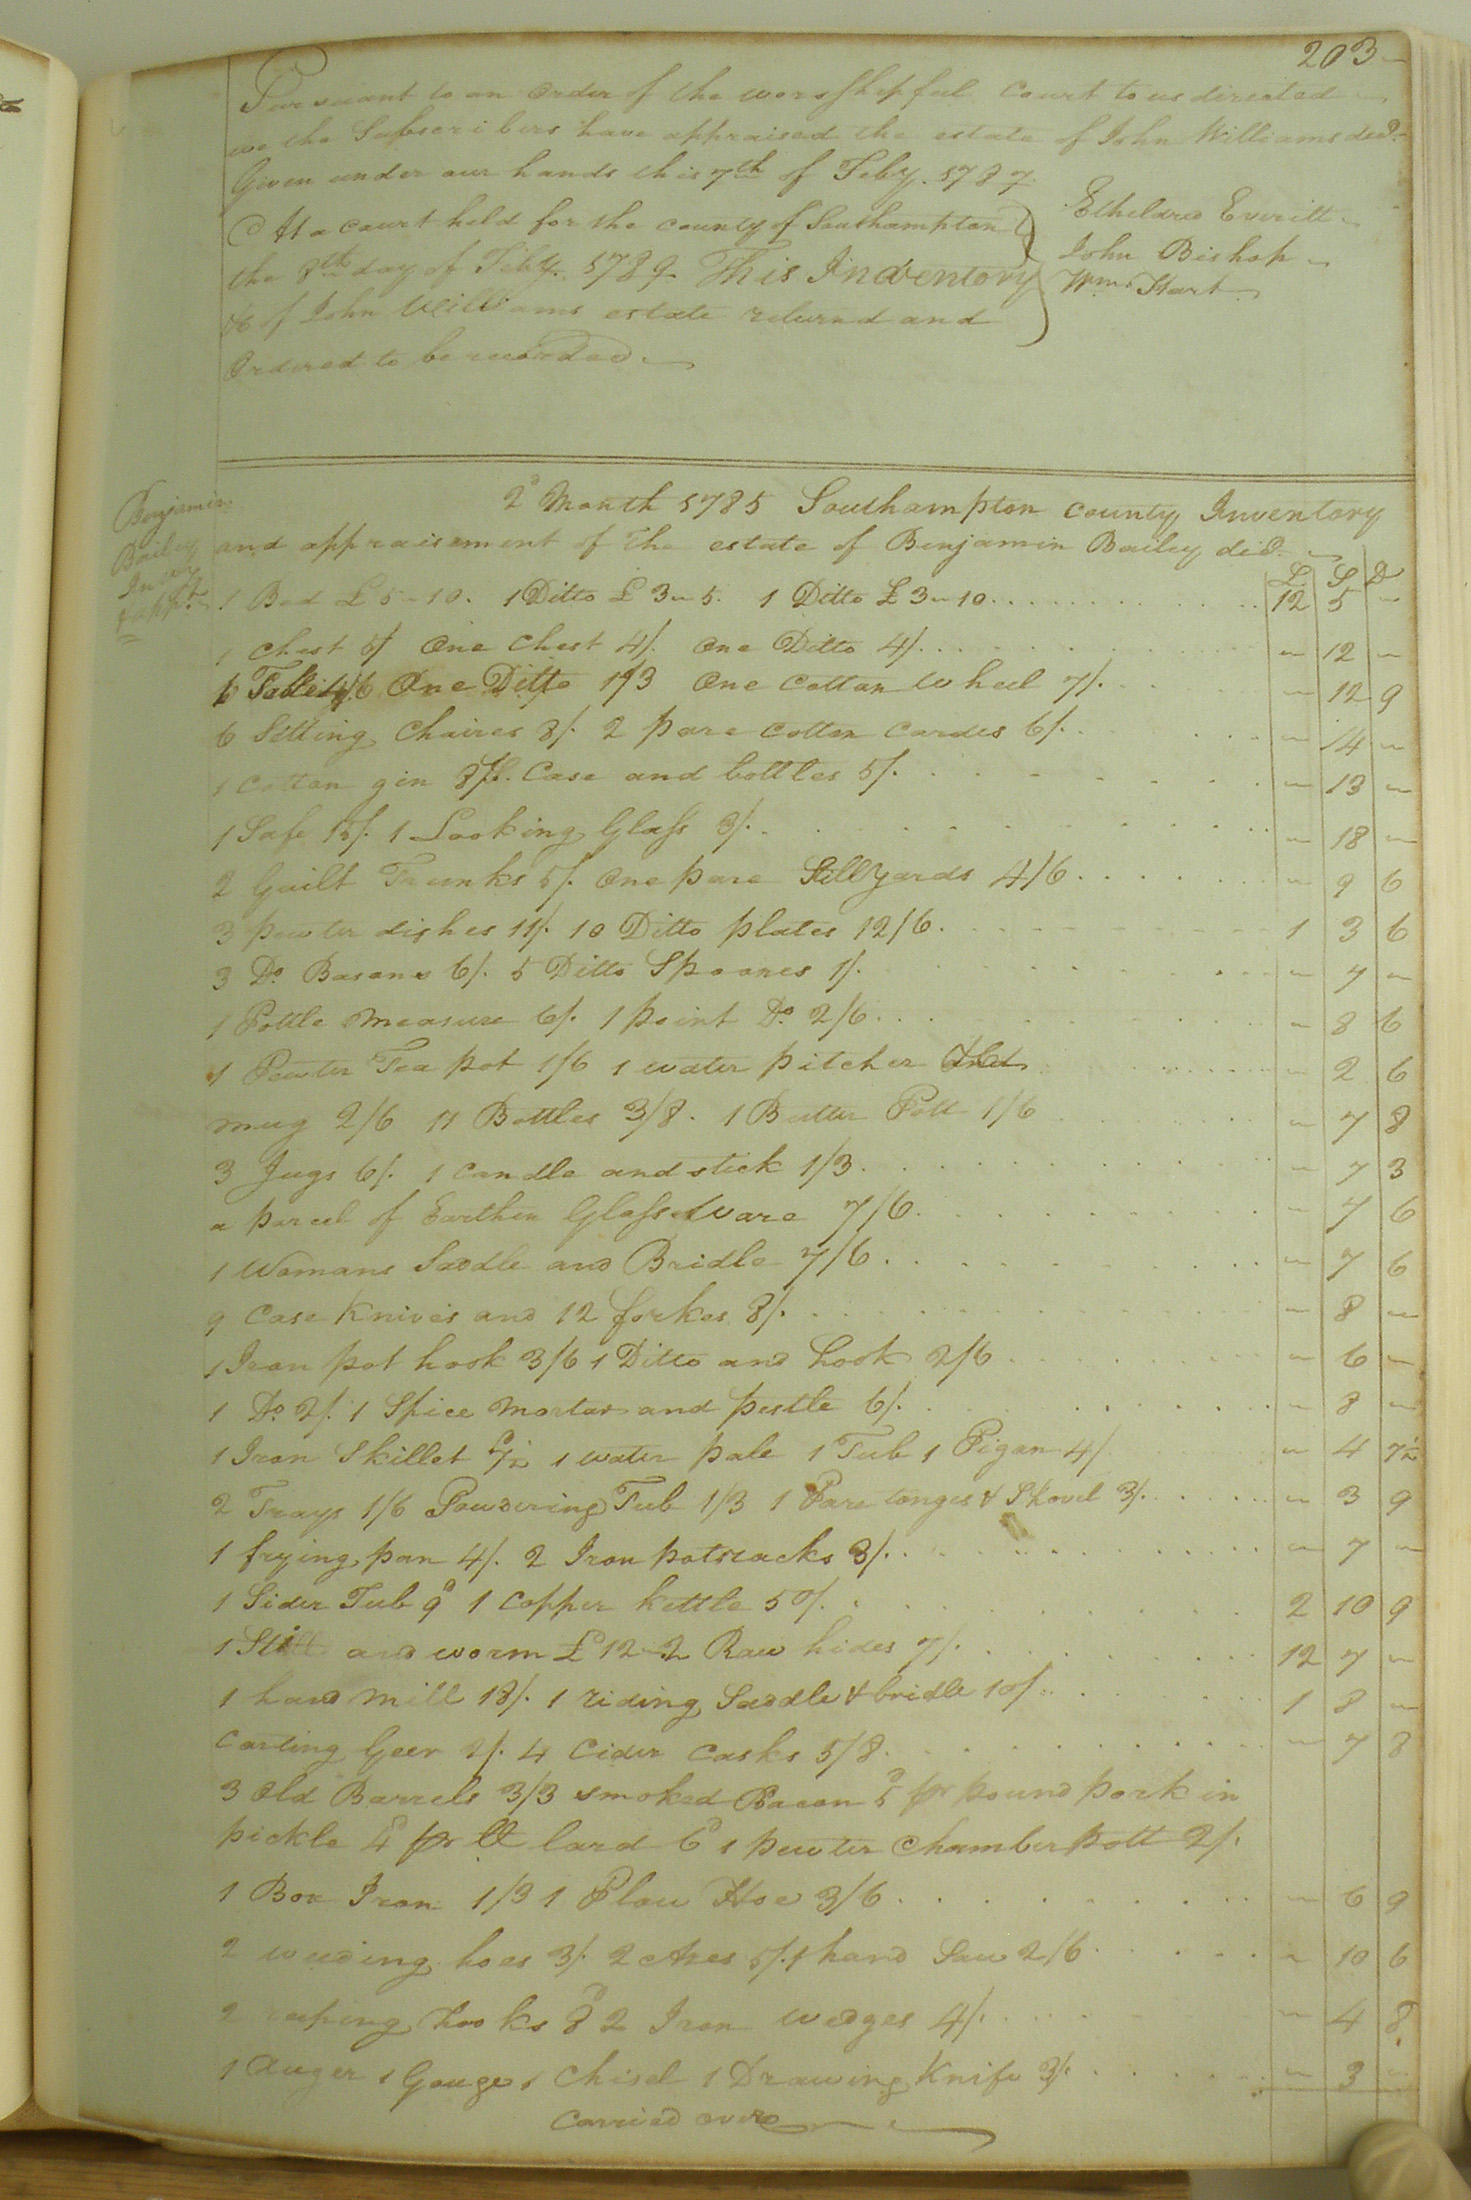 203
Pursuant to an order of the worshipful Court to us directed
we the Subscribers have appraised the estate of John Williams decd.
Given under our hands this 7th of Feby. 1787.
Etheldred Everitt
John Bishop
Wm. Hart
At a court held for the county of Southampton
the 8th day of Feby. 1789. This Indventory
&c of John Williams estate returnd and
Ordered to be recorded.
Benjamin
Bailey
Invy
& appt.
2d Month 1785 Southampton county Inventory
and appraisement of the estate of Benjamin Bailey decd.
£ S D
1 Bed £5-10. 1 Ditto £3-5. 1 Ditto £3-10. 12 5 -
1 Chest 4/ One Chest 4/. One Ditto 4/. - 12 -
One Ditto 1/3 One Cotton wheel 7/. - 12 9
6 Sitting Chaires 8/. 2 pare Cotton Cardes 6/. - 14 -
1 Cotton gin 8/. Case and bottles 5/. - 13 -
1 Safe 15/. 1 Looking Glass 3/. - 18 -
2 Guilt Trunks 5/. One pare Stillyards 4/6. - 9 6
3 pewter dishes 11/. 10 Ditto plates 12/6. 1 3 6
3 Do. Basons 6/. 5 Ditto Spoones 1/. - 7 -
1 Pottle Measure 6/. 1 point Do. 2/6. - 8 6
1 Pewter Tea pot 1/6 1 water pitcher - 2 6
mug 2/6 11 Bottles 3/8. 1 Butter Pott 1/6 - 7 8
3 Jugs 6/. 1 candle and stick 1/3. - 7 3
a parcel of Earthen Glass Ware 7/6. - 7 6
1 Womans Saddle and Bridle 7/6. - 7 6
9 Case Knives and 12 forkes 8/. - 8 -
1 Iron pot hook 3/6 1 Ditto and hook 2/6. - 6 -
1 Do. 2/. 1 Spice Mortar and pestle 6/. - 8 -
1 Iron Skillet /7½ 1 water pale 1 Tub 1 Pigan 4/ - 4 7½
2 Trays 1/6 Powdering Tub 1/3 1 Pare tonges & Shovel 3/. - 3 9
1 frying pan 4/. 2 Iron potracks 3/. - 7 -
1 Sider Tub 9d 1 Copper kettle 50/. 2 10 9
1 Still and worm £12- 2 Raw hides 7/. 12 7 -
1 hand Mill 18/. 1 riding Saddle & bridle 10/. 1 8 -
Carting Geer 2/. 4 Cider Casks 5/8. - 7 8
3 Old Barrels 3/3 smoked Bacon 5d pr pound pork in
pickle 4d pr lb lard 6d 1 pewter Chamber pott 2/.
1 Box Iron 1/3 1 Plow Hoe 3/6. - 6 9
2 weeding hoes 3/. 2 Axes 5/. 1 hand Saw 2/6. - 10 6
2 reaping hooks 8d 2 Iron wedges 4/. - 4 8
1 Auger 1 Gouge 1 Chisel 1 Drawing Knife 3/. - 3 -
Carried over